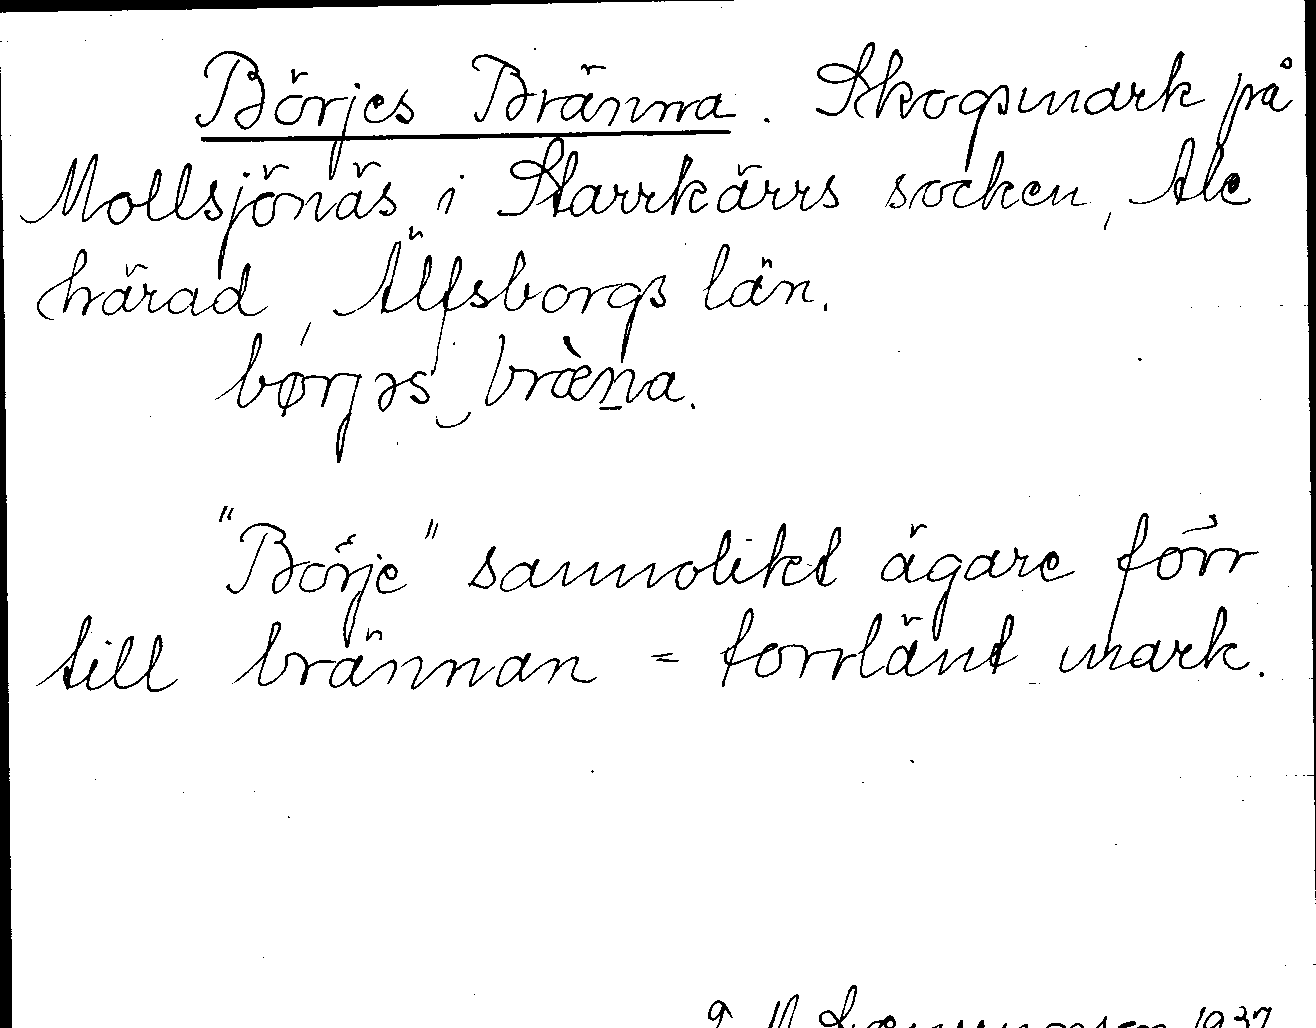 Börjes Bränna. Skogsmark på
Mollsjönäs i Starrkärrs socken, Ale
härad, Älfsborgs län.
børjəs‿bræ̀n̲a.
"Börje" sannolikt ägare förr
till brännan = torrlänt mark.
1937